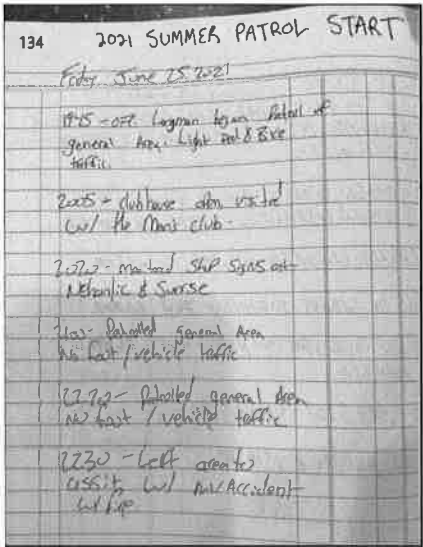 134
2021 SUMMER PATROL START
Friday June 25 2021
1945 - off. Longman began Patrol of
general Area. Light Ped & Bike
traffic.
2005 - clubhouse open visited
w/ the Mens club.
2020 - Stop Signs at
& Sunrise
2100 - Patrolled general Area
No foot / vehicle traffic
2220 - Patrolled general Area
No foot / vehicle traffic
2230 - Left area to
assist w/ MV Accident